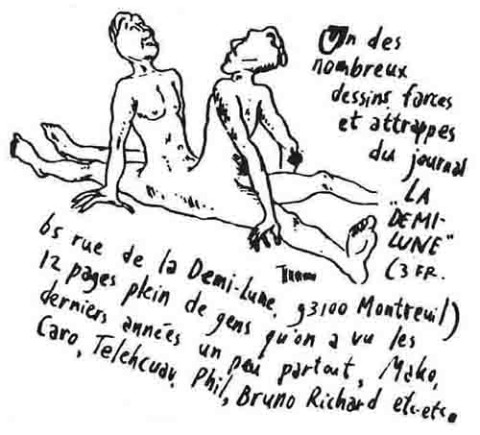 Un des
nombreux
dessins, farces
et attrappes
du journal
"LA
DEMI-
LUNE"
(3 FR.
65 rue de la Demi-lune, 93100 Montreuil)
12 pages plein de gens qu'on a vu les
derniers années un peu partout, Mako,
Caro, Phil, Bruno Richard etc. etc.